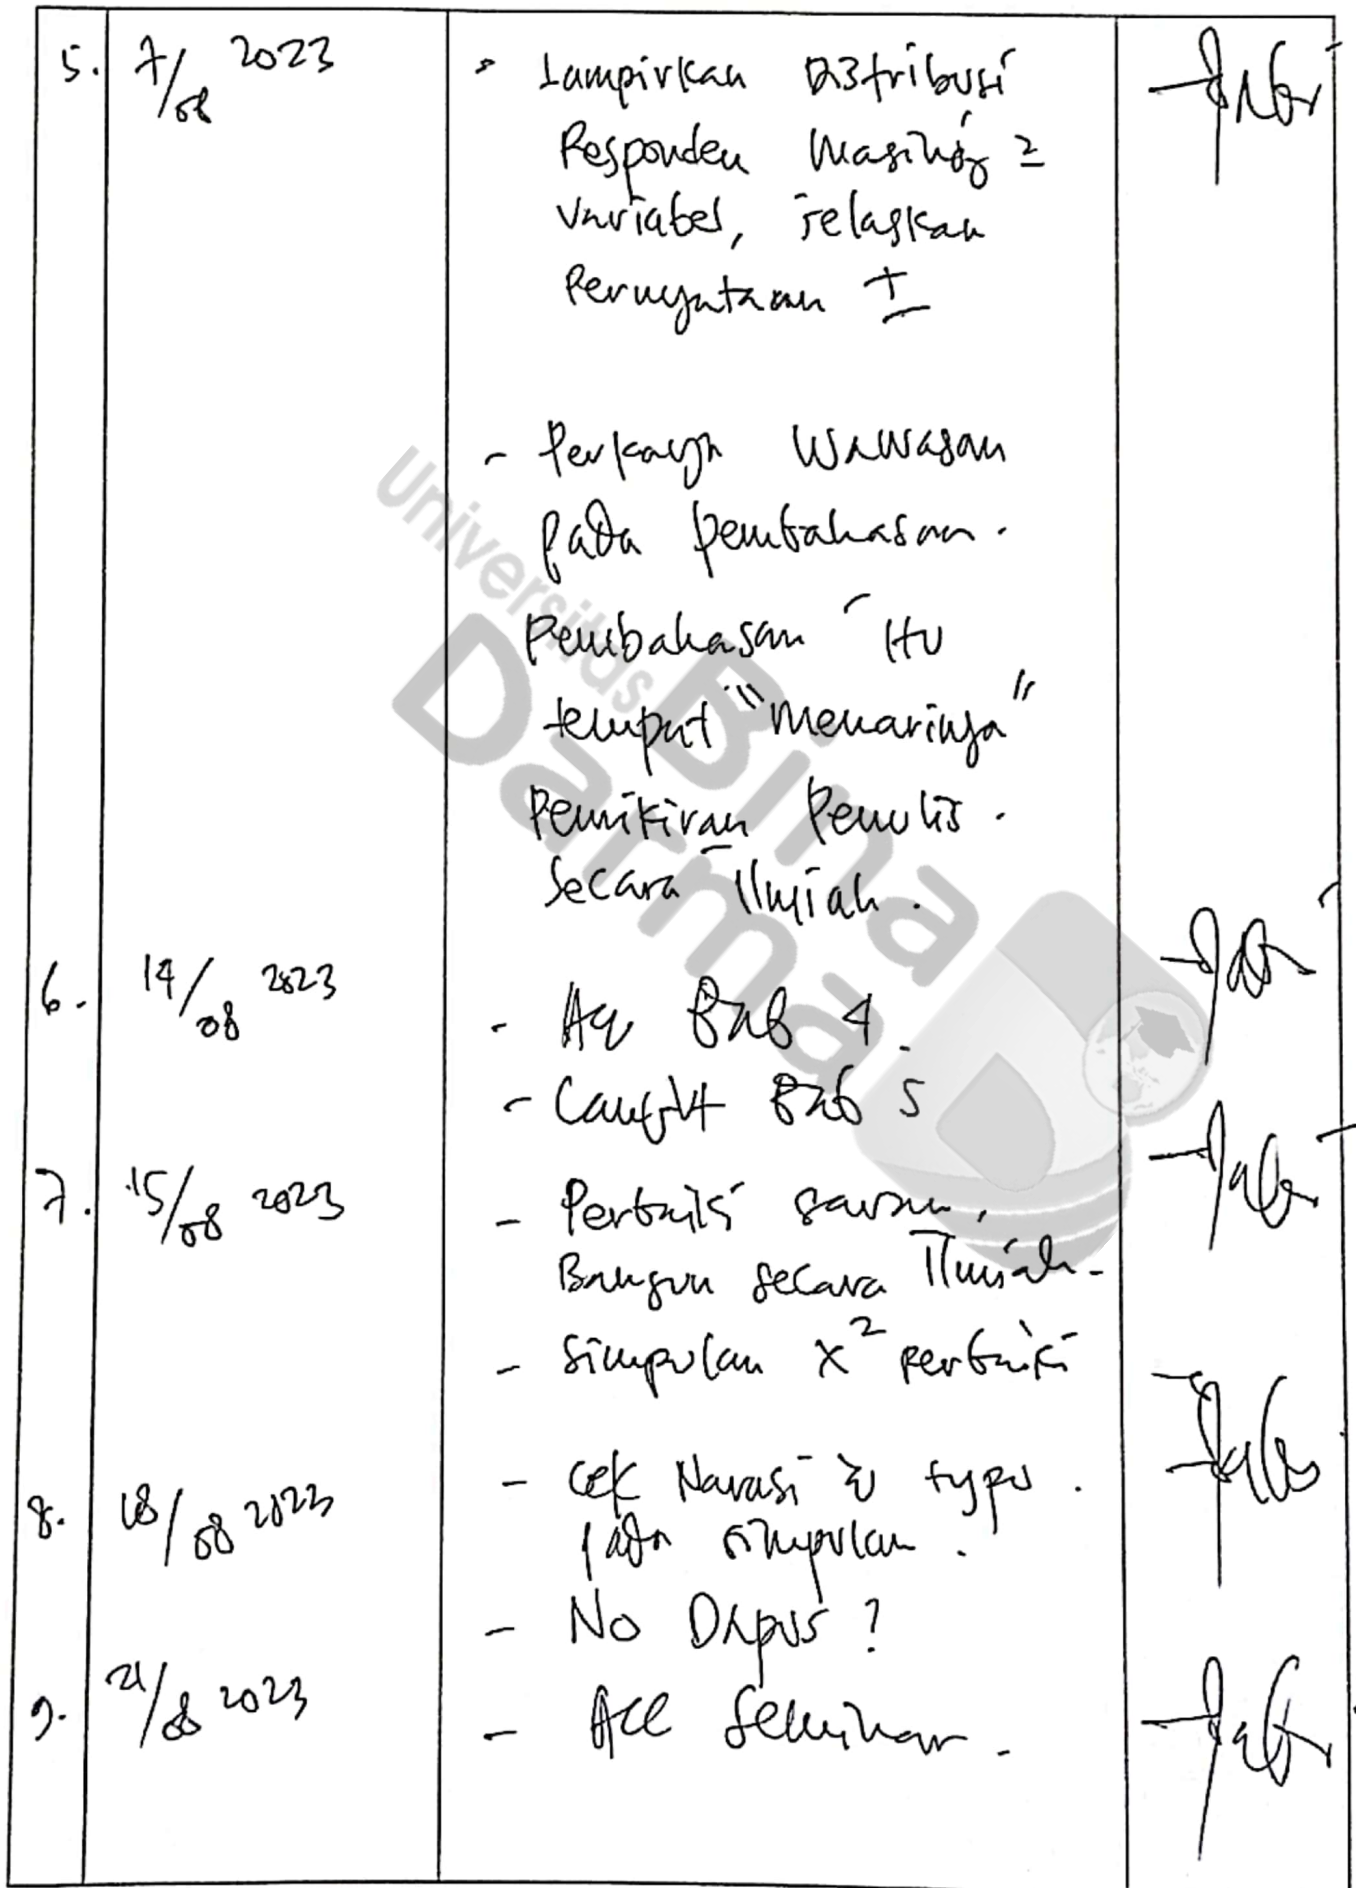 5. 7/08 2023
- Lampirkan Distribusi
Responden Masing2
Variabel, jelaskan
Pernyataan ±
- Perkaya Wawasan
pada pembahasan.
Pembahasan itu
tempat "Menarinya"
Pemikiran Penulis.
Secara Ilmiah.
6. 14/08 2023
- Acc Bab 4.
- Lanjut Bab 5
7. 15/08 2023
- Perbaiki saran,
Bangun secara Ilmiah-
- Simpulan X² perbaiki
8. 18/08 2023
- Cek Narasi & typo.
pada simpulan.
- No Dapus?
9. 21/08 2023
- Acc Seminar.
Universitas
Bina
Darma